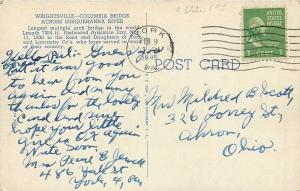 WRIGHTSVILLE—COLUMBIA BRIDGE
ACROSS SUSQUEHANNA RIVER
Longest multiple arch bridge in the world.
Length 7364 ft. Dedicated Armistice Day, Nov.
11, 1930 to the Sons and Daughters of York
and Lancaster Co's. who have served in wars
of their country.
YORK
PA
POST CARD
Hello Pal:
but it was good
to hear from you
again and many
thanks for the lovely
Card and sure
hope your little
girl is O.K. again
Write soon.
Mrs Irene E. Jewell
486
York, Pa
Mrs Mildred B. Scott,
326 Torrey St,
Akron,
Ohio.